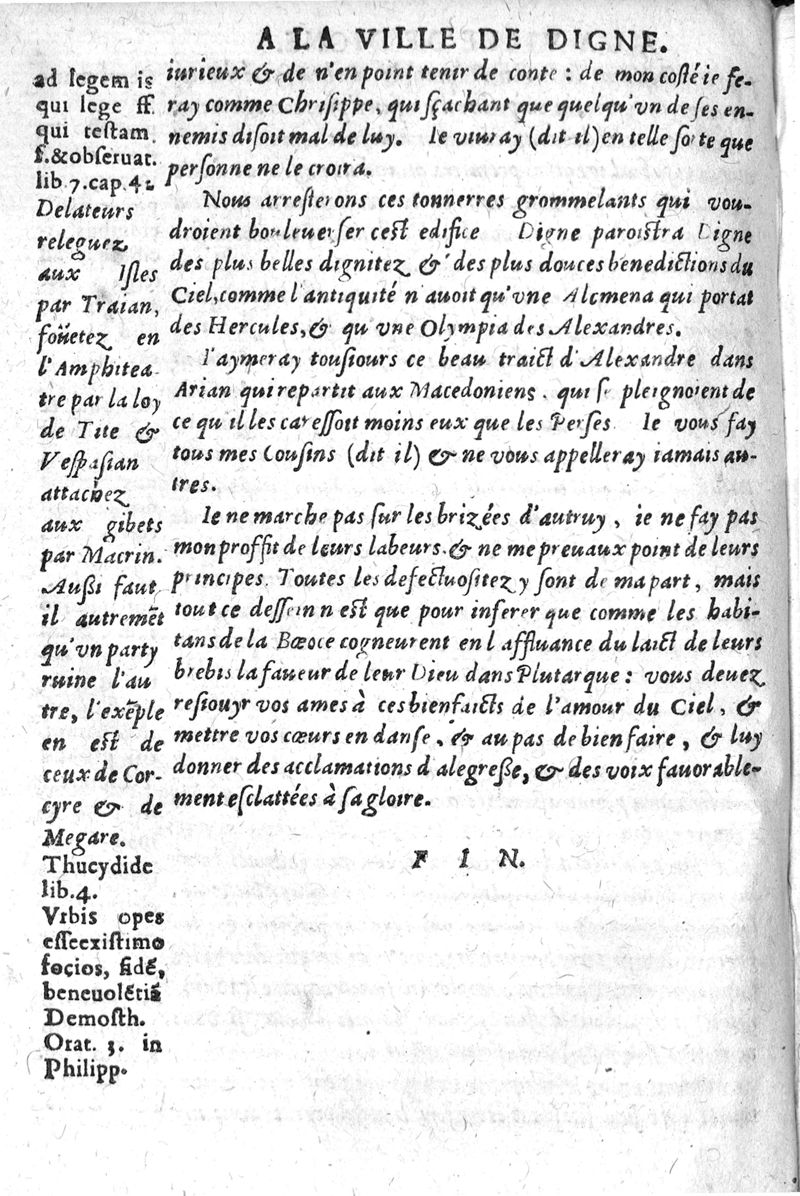 A LA VILLE DE DIGNE.
iurieux & de n'en point tenir de conte : de mon costé ie fe-
ray comme Chrisippe, qui sçachant que quelqu'vn de ses en-
nemis disoit mal de luy. Ie viuray (dit il) en telle sorte que
personne ne le croira.
Nous arresterons ces tonnerres grommelants qui vou-
droient bouleuerser cest edifice Digne paroistra Digne
des plus belles dignitez & des plus douces benedictions du
Ciel, comme l'antiquité n'auoit qu'vne Alcmena qui portat
des Hercules, & qu'vne Olympia des Alexandres.
I'aymeray tousiours ce beau traict d'Alexandre dans
Arian qui repartit aux Macedoniens, qui se pleignoient de
ce qu'il les caressoit moins eux que les Perses Ie vous fay
tous mes Cousins (dit il) & ne vous appelleray iamais au-
tres.
Ie ne marche pas sur les brizées d'autruy, ie ne fay pas
mon proffit de leurs labeurs, & ne me preuaux point de leurs
principes. Toutes les defectuositez y sont de ma part, mais
tout ce dessein n'est que pour inferer que comme les habi-
tans de la Bœoce cogneurent en l'affluance du laict de leurs
brebis la faueur de leur Dieu dans Plutarque : vous deuez
resiouyr vos ames à ces bienfaicts de l'amour du Ciel, &
mettre vos cœurs en danse, & au pas de bien faire, & luy
donner des acclamations d'alegresse, & des voix fauorable-
ment esclattées à sa gloire.
F I N.
ad legem is
qui lege ff.
qui testam.
f. & obseruat.
lib. 7. cap. 42
Delateurs
releguez
aux Isles
par Traian,
foüetez en
l'Amphitea-
tre par la loy
de Tite &
Vespasian
attachez
aux gibets
par Macrin.
Aussi faut
il autremēt
qu'vn party
ruine l'au
tre, l'exēple
en est de
ceux de Cor-
cyre & de
Megare.
Thucydide
lib. 4.
Vrbis opes
esse existimo
socios, fidē,
beneuolētiā
Demosth.
Orat. 3. in
Philipp.